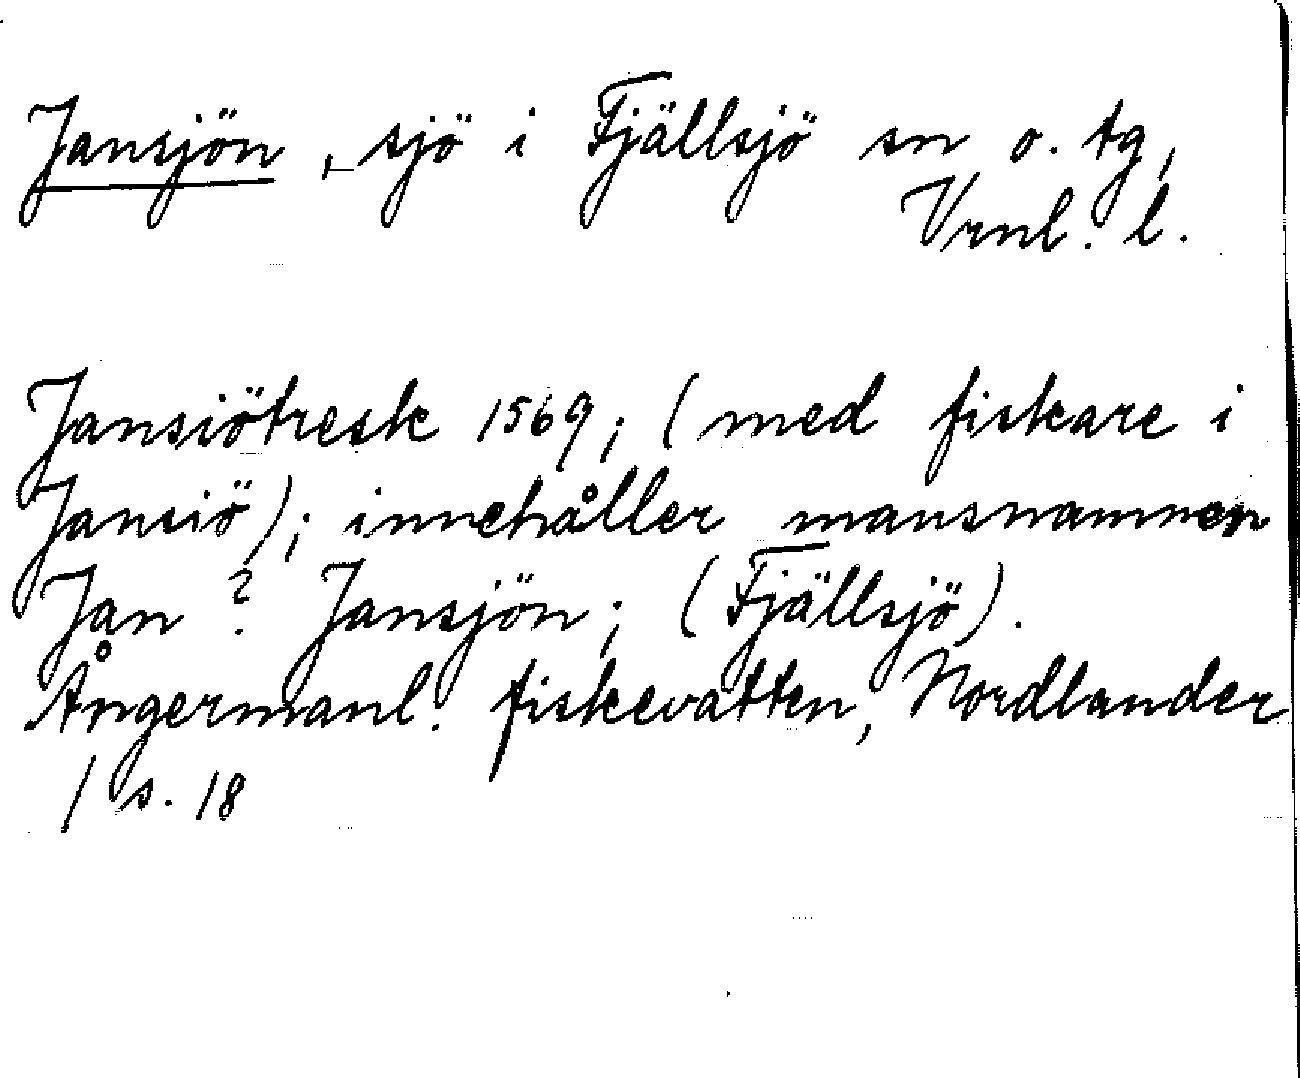 Jansjön, sjö i Fjällsjö sn o. tg,
Vrnl. l.
Jansiötresk 1569; (med fiskare i
Jansiö); innehåller mansnamnen
Jan? Jansjön; (Fjällsjö).
Ångermanl. fiskevatten, Nordlander
/ s. 18